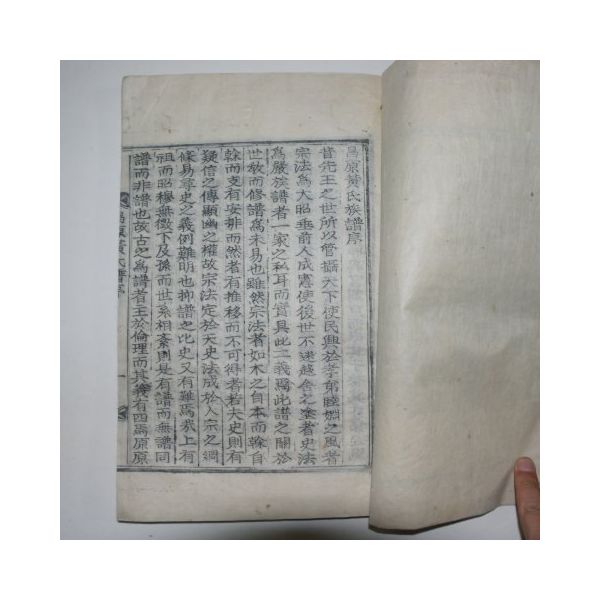 昌原黃氏族譜序
昔先王之世所以管攝天下使民興於孝弟睦婣之風者
宗法爲大昭垂前人成憲使後世不迷趍舍之塗者史法
爲嚴族譜者一家之私耳而實具此二義焉此譜之關於
世敎而修譜爲未易也雖然宗法者如木之自本而榦自
榦而支有安排而然者有推移而不可得者若夫史則有
疑信之傳顯幽之權故宗法定於天史法成於人宗之綱
條易尋史之義例難明也抑譜之比史又有難焉柰上有
祖而昭穆無徵下及孫而世系相紊則是有譜而無譜同
譜而非譜也故古之爲譜者主於倫理而其義有四焉原原
昌原黃氏譜序
一